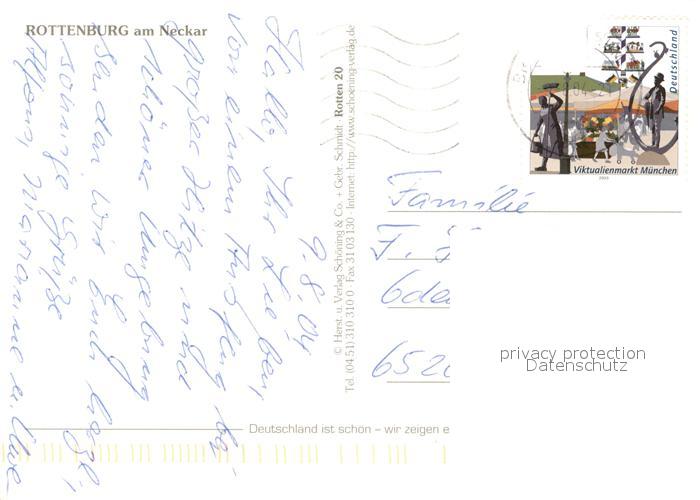 ROTTENBURG am Neckar
9.8.04
Hallo, Ihr Lieben,
von einem Ausflug bei
großer Hitze und
schöner Umgebung
senden wir Euch herzl.,
sonnige Grüße
Marianne u. Uwe
© Herst. u. Verlag Schöning & Co. + Gebr. Schmidt · Rotten 20
Tel. (04 51) 310 310 0 · Fax 31 03 130 · Internet: http://www.schoening-verlag.de
Deutschland
Viktualienmarkt München
2003
Familie
652
privacy protection
Datenschutz
Deutschland ist schön – wir zeigen e